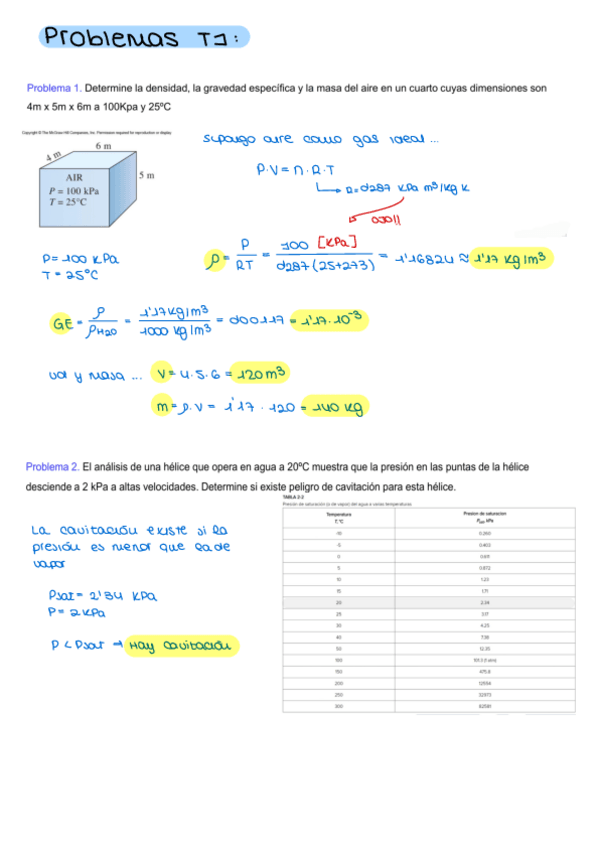 Problemas T1:
Problema 1. Determine la densidad, la gravedad específica y la masa del aire en un cuarto cuyas dimensiones son
4m x 5m x 6m a 100Kpa y 25ºC
Copyright © The McGraw-Hill Companies, Inc. Permission required for reproduction or display.
4 m
6 m
5 m
AIR
P = 100 kPa
T = 25°C
supongo aire como gas ideal ...
P·V = n·R·T
R = 0'287 kPa m³/kg K
ojo!!
P = 100 kPa
T = 25°C
ρ = P / RT = 100 [kPa] / 0'287 (25+273) = 1'16824 ≈ 1'17 kg/m³
GE = ρ / ρH2O = 1'17 kg/m³ / 1000 kg/m³ = 0'00117 = 1'17·10⁻³
vol y masa ... V = 4·5·6 = 120 m³
m = ρ·V = 1'17 · 120 = 140 kg
Problema 2. El análisis de una hélice que opera en agua a 20ºC muestra que la presión en las puntas de la hélice
desciende a 2 kPa a altas velocidades. Determine si existe peligro de cavitación para esta hélice.
La cavitación existe si la
presión es menor que la de
vapor
Psat = 2'34 kPa
P = 2 kPa
P < Psat → Hay cavitación
TABLA 2-2
Presión de saturación (o de vapor) del agua a varias temperaturas
Temperatura Presión de saturación
T, °C Psat, kPa
-10 0.260
-5 0.403
0 0.611
5 0.872
10 1.23
15 1.71
20 2.34
25 3.17
30 4.25
40 7.38
50 12.35
100 101.3 (1 atm)
150 475.8
200 1554
250 3973
300 8581